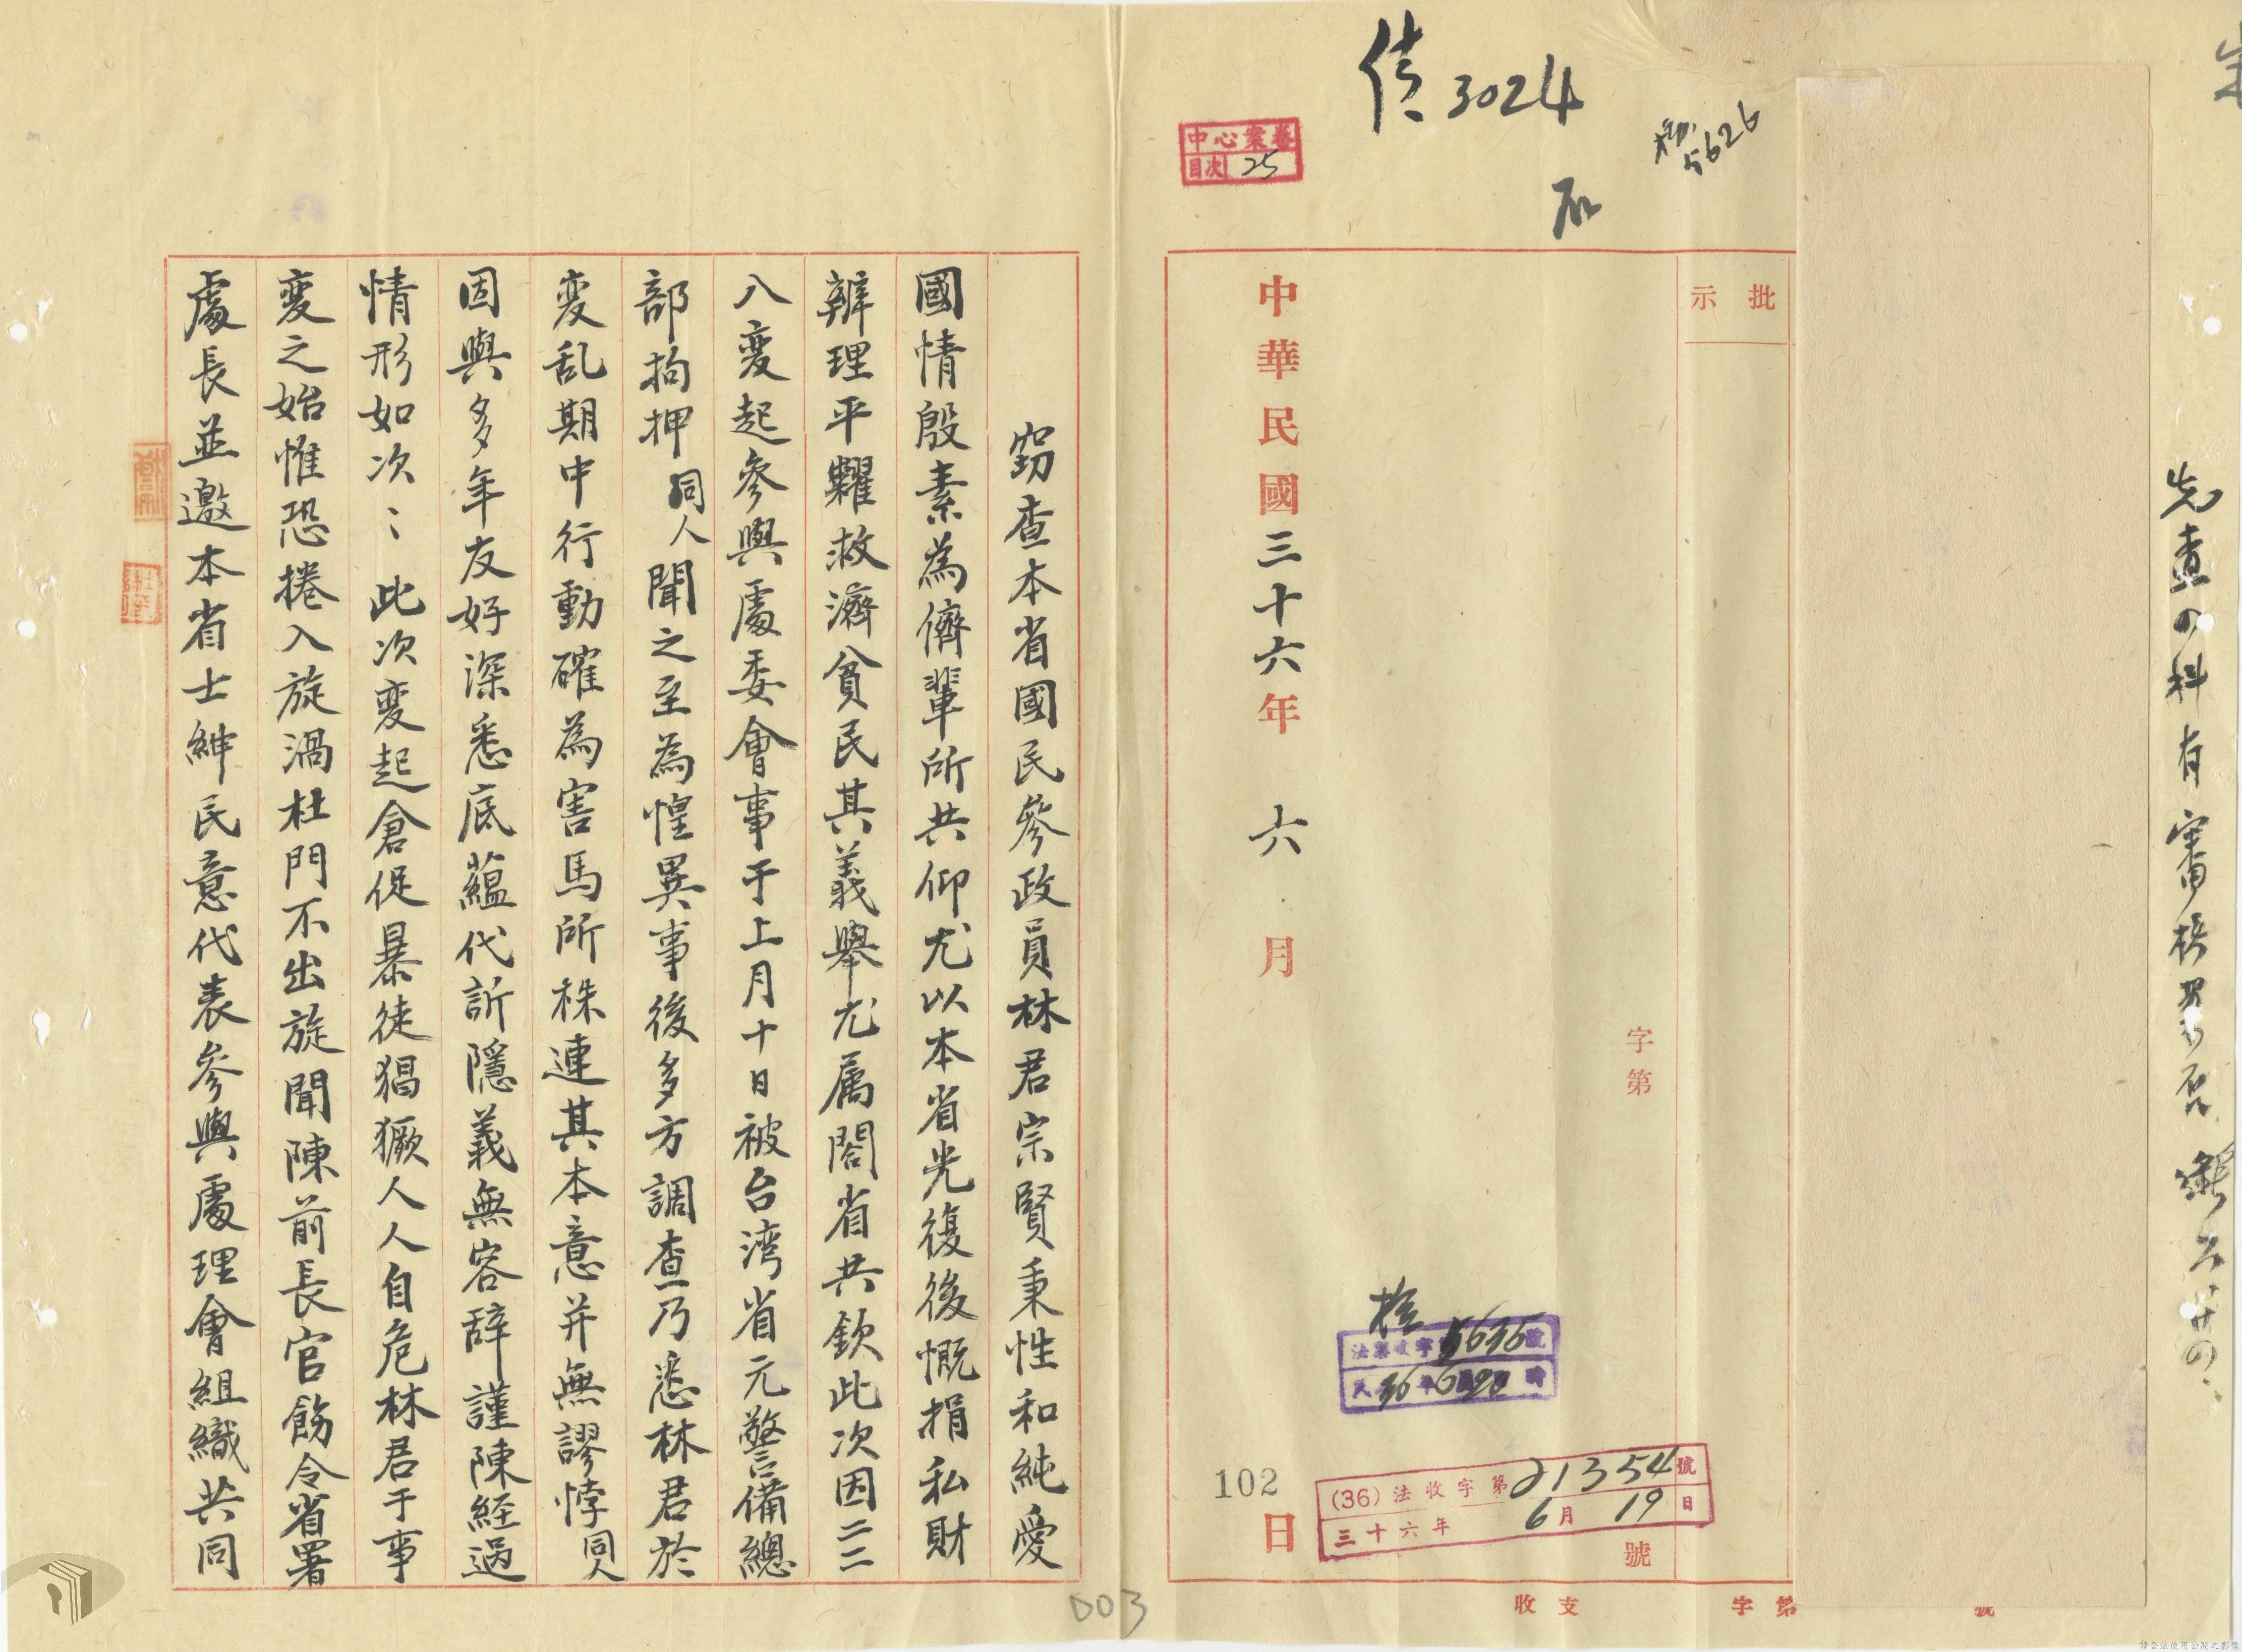 先查の科有審核另否
傳3024
5626
中心案卷
目次 25
批示
中華民國三十六年 六 月 日
字第 號
法 收字 5636 號
民 36 年 6 20 時
(36)法收字第21354號
三十六年6月19日
102
收支
字第 號
竊查本省國民參政員林君宗賢秉性和純愛
國情殷素為儕輩所共仰尤以本省光復後慨捐私財
辦理平糶救濟貧民其義舉尤属閤省共欽此次因二二
八变起參與處委會事于上月十日被台湾省元警備總
部拘押同人聞之至為惶異事後多方調查乃悉林君於
变乱期中行動確為害馬所株連其本意并無謬悖同人
因與多年友好深悉底蘊代訴隱義無容辞謹陳経過
情形如次：此次变起倉促暴徒猖獗人人自危林君于事
变之始惟恐捲入旋渦杜門不出旋聞陳前長官飭令省署
處長並邀本省士紳民意代表參與處理會組織共同
003
請合法使用公開之影像